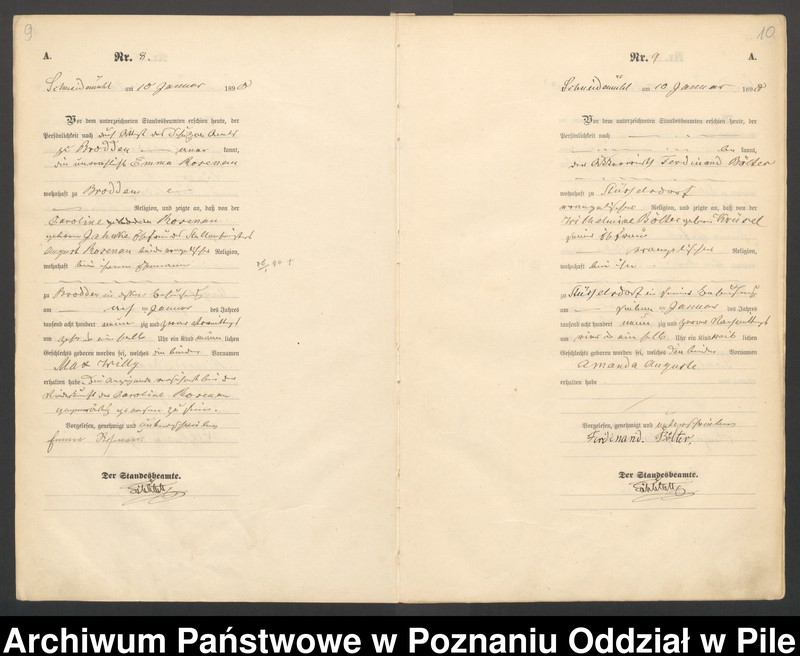 9
A.
Nr. 8.
Schneidemühl am 10 Januar 1890
Vor dem unterzeichneten Standesbeamten erschien heute, der
Persönlichkeit nach durch Attest des Schulzen Amts
zu Brodden kannt,
die unverehelichte Emma Rosenau
wohnhaft zu Brodden
Religion, und zeigte an, daß von der
Caroline Rosenau
geborne Jahnke Ehefrau des
August Rosenau evangelischer Religion,
wohnhaft bei ihrem Ehemann
zu Brodden in dessen Behausung
am Januar des Jahres
tausend acht hundert neun zig und zwar Vormittags
um ein halb Uhr ein Kind männ lichen
Geschlechts geboren worden sei, welches die beiden Vornamen
Max Willy
erhalten habe. Die Anzeigende versichert bei der
Niederkunft der Caroline Rosenau
zugegen gewesen zu sein.
Vorgelesen, genehmigt und unterschrieben
Emma
Der Standesbeamte.
10
Nr. 9
A.
Schneidemühl am 10 Januar 1890
Vor dem unterzeichneten Standesbeamten erschien heute, der
Persönlichkeit nach
be kannt,
der Ackerwirth Ferdinand Bölter
wohnhaft zu
evangelischer Religion, und zeigte an, daß von der
Wilhelmine Bölter geborne Krüsel
seiner Ehefrau
evangelischer Religion,
wohnhaft bei ihm
zu in seiner Behausung
am sieben Januar des Jahres
tausend acht hundert neun zig und zwar Nachmittags
um ein halb Uhr ein Kind weib lichen
Geschlechts geboren worden sei, welches die beiden Vornamen
Amanda Auguste
erhalten habe
Vorgelesen, genehmigt und unterschrieben
Ferdinand. Bölter,
Der Standesbeamte.
Archiwum Państwowe w Poznaniu Oddział w Pile